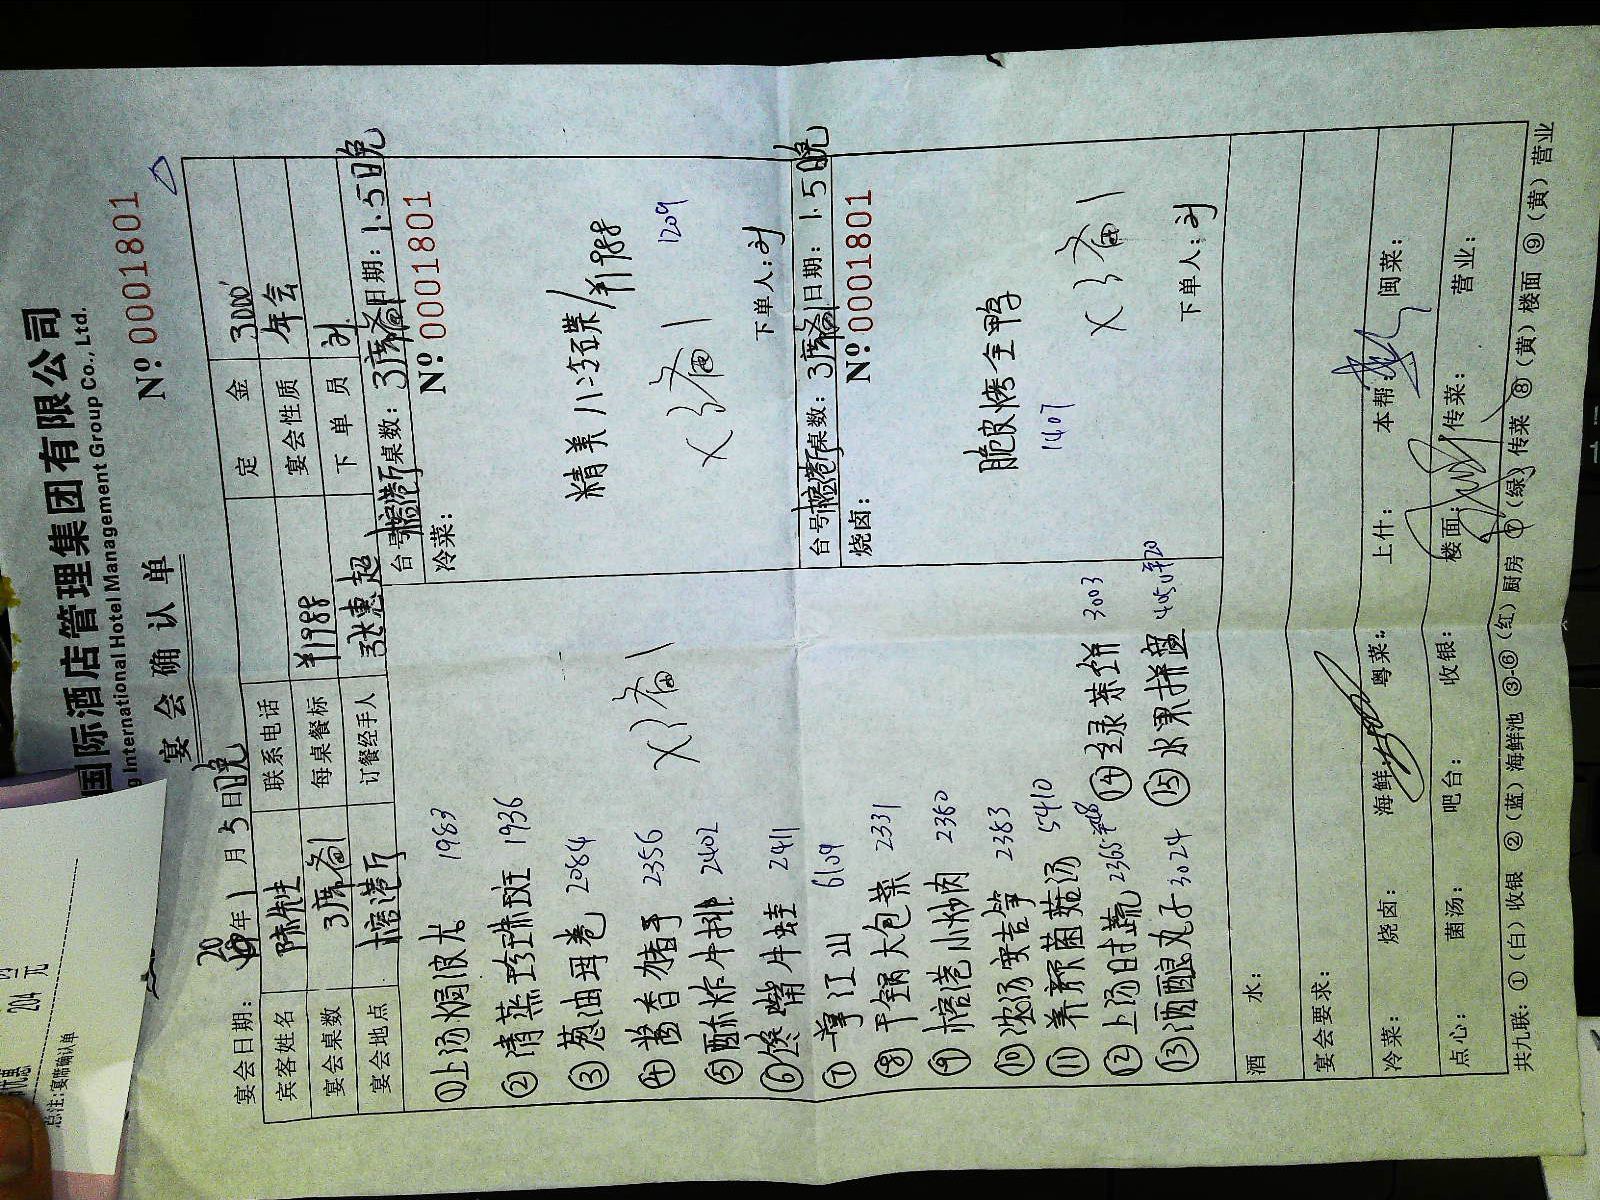 国际酒店管理集团有限公司
g International Hotel Management Group Co., Ltd.
宴会确认单
Nº 0001801
宴会日期： 年 1 月 5 日晚
宾客姓名 陈先生 联系电话 定金 3000
宴会桌数 3席备1 每桌餐标 ¥1988 宴会性质 年会
宴会地点 榕港厅 订餐经手人 张惠超 下单员 刘
台号 榕港厅 桌数：3席备1 日期：1.5日晚
冷菜： Nº 0001801
精美八冷碟/¥1988
1209
×3备1
下单人：刘
台号 榕港厅 桌数：3席备1 日期：1.5日晚
烧卤： Nº 0001801
脆皮烤全鸭
1407
×3备1
下单人：刘
①上汤焗波龙 1983
②清蒸珍珠斑 1936
③葱油珥卷 2084
④酱香猪手 2356
⑤酥炸牛排 2402
⑥馋嘴牛蛙 2411
⑦ 江山 6109
⑧干锅大包菜 2331
⑨榕港小炒肉 2380
⑩浓汤安吉笋 2383
⑪养颜菌菇汤 5410
⑫上汤时蔬 2365
⑬酒酿丸子 3024
⑭绿茶饼 3003
⑮水果拼盘
×3备1
酒水：
宴会要求：
冷菜： 烧卤： 海鲜： 粤菜： 上什： 本帮： 闽菜：
点心： 菌汤： 吧台： 收银： 楼面： 传菜： 营业：
共九联：①（白）收银 ②（蓝）海鲜池 ③-⑥（红）厨房 ⑦（绿）传菜 ⑧（黄）楼面 ⑨（黄）营业
204 元
总注：宴席确认单